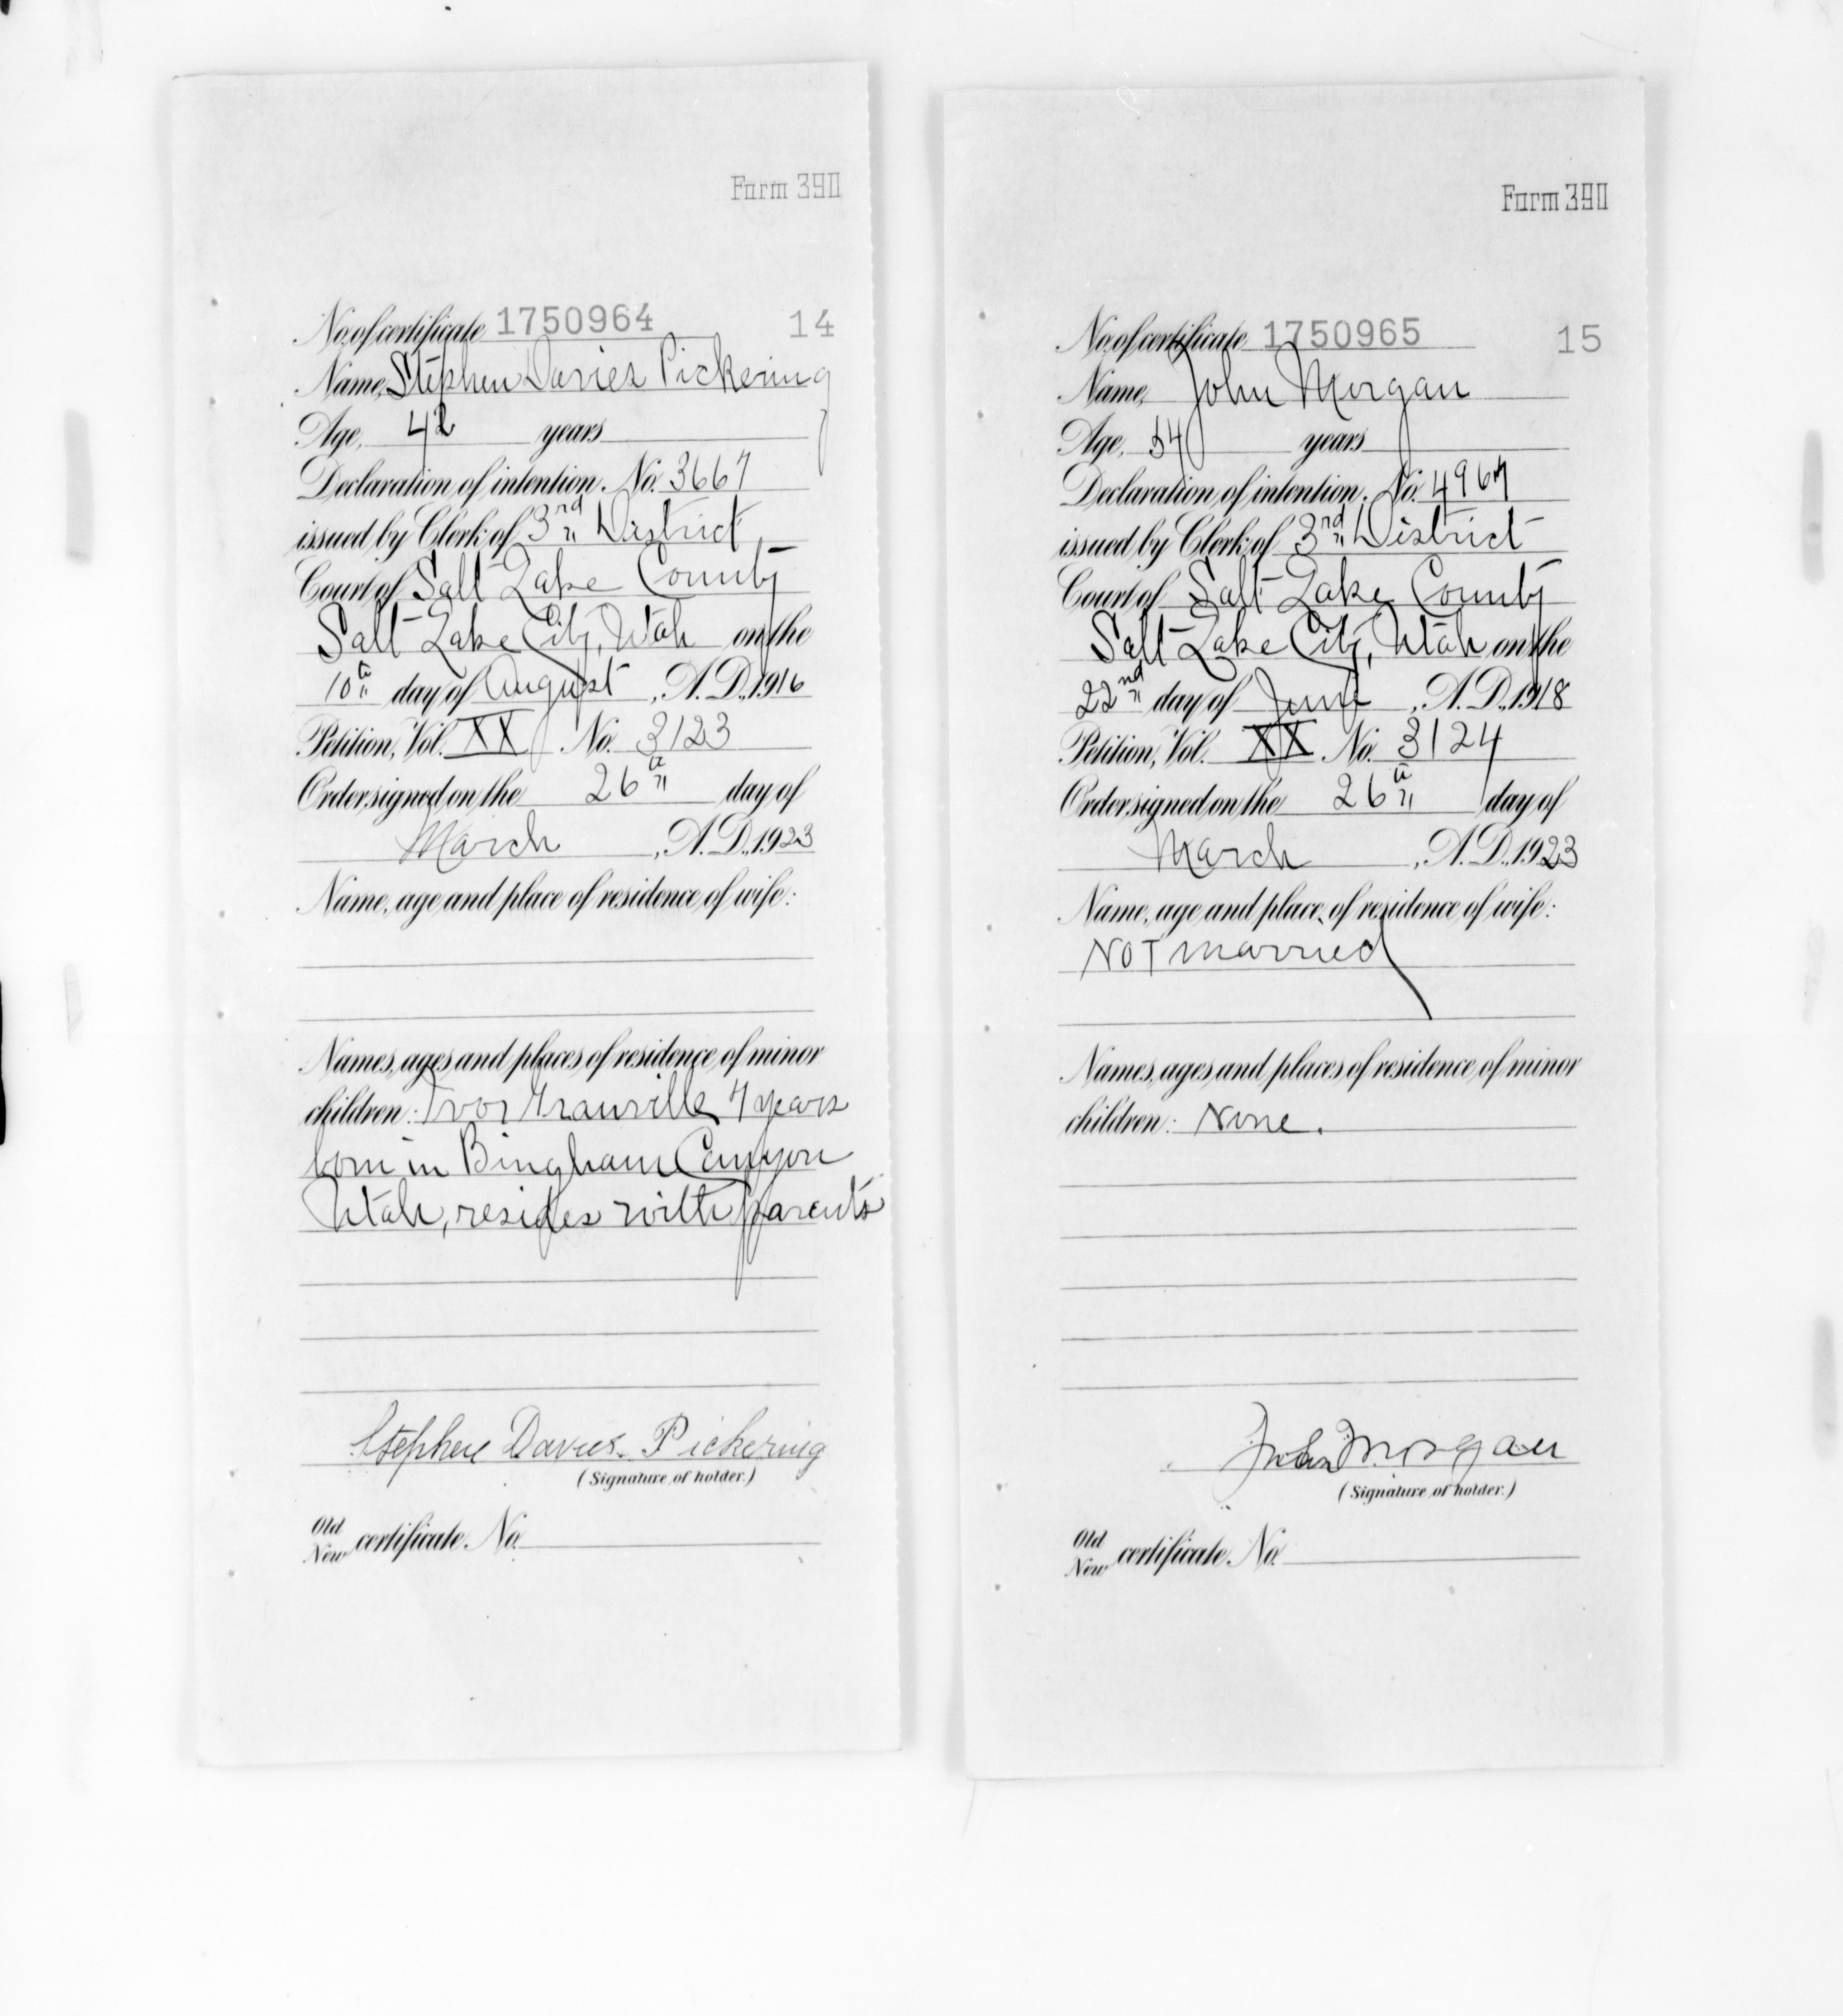 Form 390
No. of certificate 1750964 14
Name, Stephen Davies Pickering
Age, 42 years
Declaration of intention. No. 3667
issued by Clerk of 3rd District
Court of Salt Lake County
Salt Lake City, Utah on the
10th day of August, A.D., 1916
Petition, Vol. XX No. 3123
Order signed on the 26th day of
March, A.D., 1923
Name, age and place of residence of wife:
Names, ages and places of residence of minor
children: Ivor Granville 7 years
born in Bingham Canyon
Utah, resides with parents
Stephen Davies Pickering
(Signature of holder.)
Old
New certificate No.
Form 390
No. of certificate 1750965 15
Name, John Morgan
Age, 54 years
Declaration of intention. No. 4967
issued by Clerk of 3rd District
Court of Salt Lake County
Salt Lake City, Utah on the
22nd day of June, A.D., 1918
Petition, Vol. XX No. 3124
Order signed on the 26th day of
March, A.D., 1923
Name, age and place of residence of wife:
Not married
Names, ages and places of residence of minor
children: None.
John Morgan
(Signature of holder.)
Old
New certificate No.